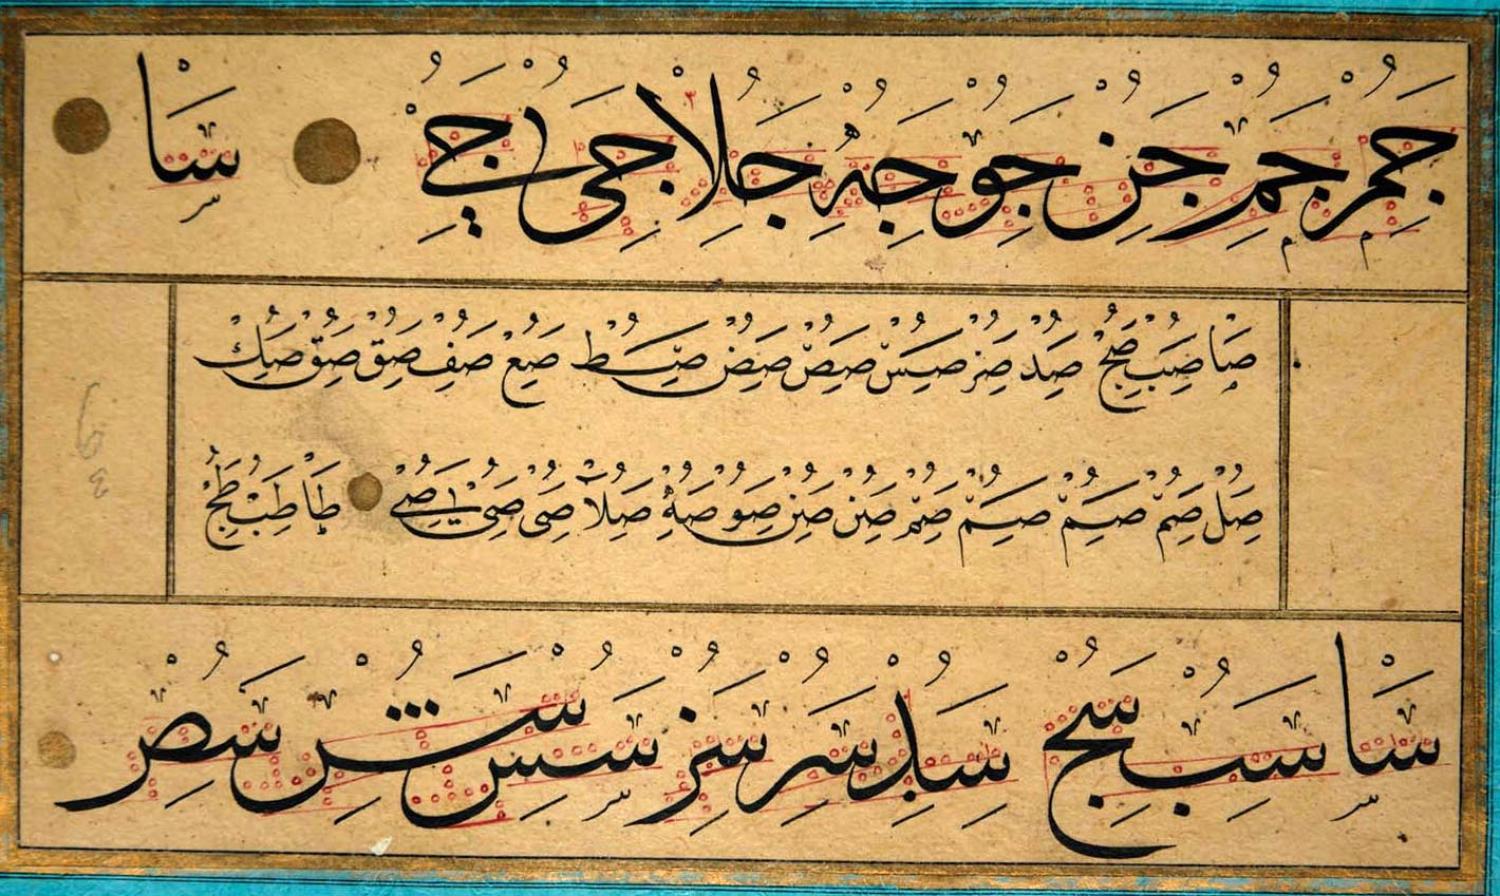 جم جم جن جو جه جلا جى جے سا
صا صب صج صد صر صس صص صص صط صع صف صق صق صك
صل صم صم صم صم صن صن صو صه صلا صى صے طا طب طج
سا سب سج سد سر سر سس سش سص